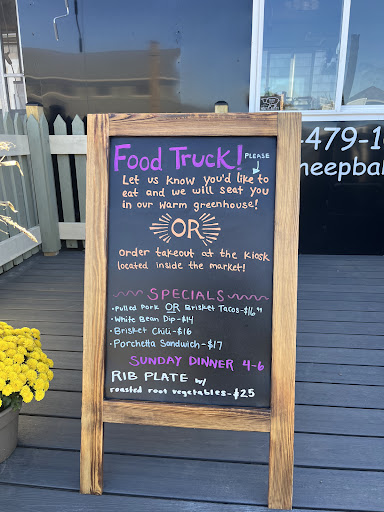 Food Truck! PLEASE
Let us know you'd like to
eat and we will seat you
in our warm greenhouse!
OR
order takeout at the Kiosk
located inside the market!
SPECIALS
• Pulled Pork OR Brisket Tacos-$16
• White Bean Dip-$14
• Brisket Chili-$16
• Porchetta Sandwich-$17
SUNDAY DINNER 4-6
RIB PLATE w/
roasted root vegetables-$25
-479-1